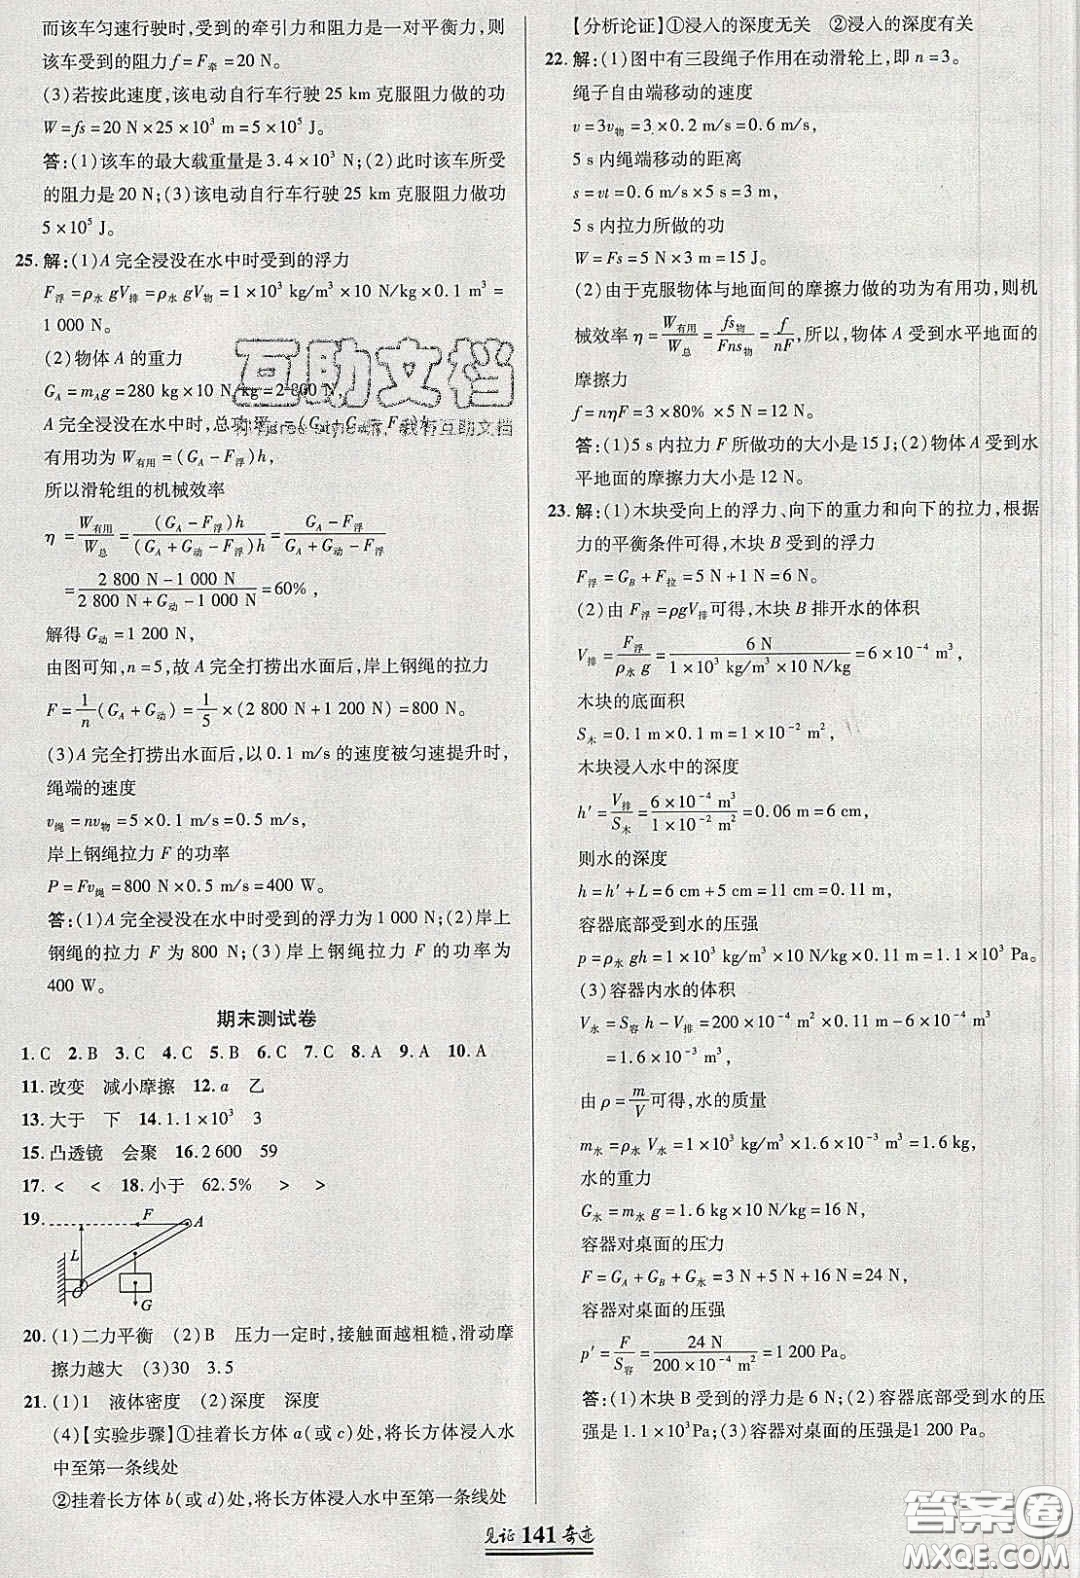 而该车匀速行驶时,受到的牵引力和阻力是一对平衡力,则
该车受到的阻力 f=F牵=20 N。
(3)若按此速度,该电动自行车行驶 25 km 克服阻力做的功
W=fs=20 N×25×10³ m=5×10⁵ J。
答:(1)该车的最大载重量是 3.4×10³ N;(2)此时该车所受
的阻力是 20 N;(3)该电动自行车行驶 25 km 克服阻力做功
5×10⁵ J。
25.解:(1)A 完全浸没在水中时受到的浮力
F浮=ρ水 gV排=ρ水 gV物=1×10³ kg/m³×10 N/kg×0.1 m³=
1 000 N。
(2)物体 A 的重力
G_A=m_A g=280 kg×10 N/kg=2 800 N,
A 完全浸没在水中时,总功 =(G_A+G F浮)
有用功为 W有用=(G_A-F浮)h,
所以滑轮组的机械效率
η=W有用/W总=(G_A-F浮)h/(G_A+G动-F浮)h=(G_A-F浮)/(G_A+G动-F浮)
=(2 800 N-1 000 N)/(2 800 N+G动-1 000 N)=60%,
解得 G动=1 200 N,
由图可知,n=5,故 A 完全打捞出水面后,岸上钢绳的拉力
F=1/n(G_A+G动)=1/5×(2 800 N+1 200 N)=800 N。
(3)A 完全打捞出水面后,以 0.1 m/s 的速度被匀速提升时,
绳端的速度
v绳=nv物=5×0.1 m/s=0.5 m/s,
岸上钢绳拉力 F 的功率
P=Fv绳=800 N×0.5 m/s=400 W。
答:(1)A 完全浸没在水中时受到的浮力为 1 000 N;(2)岸上
钢绳的拉力 F 为 800 N;(3)岸上钢绳拉力 F 的功率为
400 W。
期末测试卷
1.C 2.B 3.C 4.C 5.B 6.C 7.C 8.A 9.A 10.A
11.改变 减小摩擦 12.a 乙
13.大于 下 14.1.1×10³ 3
15.凸透镜 会聚 16.2 600 59
17.< < 18.小于 62.5% > >
19.
F A
L
O
G
20.(1)二力平衡 (2)B 压力一定时,接触面越粗糙,滑动摩
擦力越大 (3)30 3.5
21.(1)1 液体密度 (2)深度 深度
(4)【实验步骤】①挂着长方体 a(或 c)处,将长方体浸入水
中至第一条线处
②挂着长方体 b(或 d)处,将长方体浸入水中至第一条线处
【分析论证】①浸入的深度无关 ②浸入的深度有关
22.解:(1)图中有三段绳子作用在动滑轮上,即 n=3。
绳子自由端移动的速度
v=3v物=3×0.2 m/s=0.6 m/s,
5 s 内绳端移动的距离
s=vt=0.6 m/s×5 s=3 m,
5 s 内拉力所做的功
W=Fs=5 N×3 m=15 J。
(2)由于克服物体与地面间的摩擦力做的功为有用功,则机
械效率 η=W有用/W总=fs物/Fns物=f/nF,所以,物体 A 受到水平地面的
摩擦力
f=nηF=3×80%×5 N=12 N。
答:(1)5 s 内拉力 F 所做功的大小是 15 J;(2)物体 A 受到水
平地面的摩擦力大小是 12 N。
23.解:(1)木块受向上的浮力、向下的重力和向下的拉力,根据
力的平衡条件可得,木块 B 受到的浮力
F浮=G_B+F拉=5 N+1 N=6 N。
(2)由 F浮=ρgV排可得,木块 B 排开水的体积
V排=F浮/ρ水 g=6 N/(1×10³ kg/m³×10 N/kg)=6×10⁻⁴ m³,
木块的底面积
S木=0.1 m×0.1 m=1×10⁻² m²,
木块浸入水中的深度
h′=V排/S木=6×10⁻⁴ m³/1×10⁻² m²=0.06 m=6 cm,
则水的深度
h=h′+L=6 cm+5 cm=11 cm=0.11 m,
容器底部受到水的压强
p=ρ水 gh=1×10³ kg/m³×10 N/kg×0.11 m=1.1×10³ Pa。
(3)容器内水的体积
V水=S容 h-V排=200×10⁻⁴ m²×0.11 m-6×10⁻⁴ m³
=1.6×10⁻³ m³,
由 ρ=m/V可得,水的质量
m水=ρ水 V水=1×10³ kg/m³×1.6×10⁻³ m³=1.6 kg,
水的重力
G水=m水 g=1.6 kg×10 N/kg=16 N,
容器对桌面的压力
F=G_A+G_B+G水=3 N+5 N+16 N=24 N,
容器对桌面的压强
p′=F/S容=24 N/200×10⁻⁴ m²=1 200 Pa。
答:(1)木块 B 受到的浮力是 6 N;(2)容器底部受到水的压
强是 1.1×10³ Pa;(3)容器对桌面的压强是1 200 Pa。
见证 141 奇迹
互助文档
答案圈
MXQE.COM